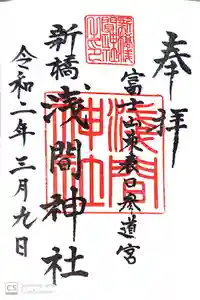 奉拝
富士山東表口参道宮
新橋浅間神社
浅間神社
令和二年三月九日
CS